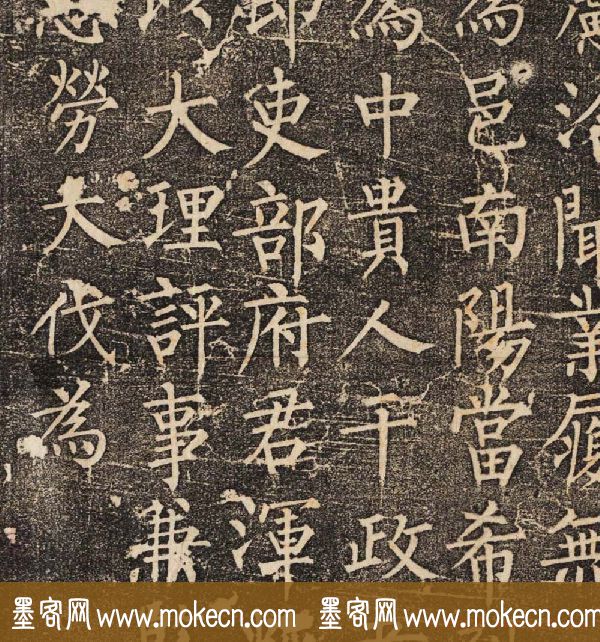 聞業履無
為邑南陽當希
為中貴人干政
吏部府君渾
以大理評事兼
勞大伐為
墨客网 www.mokecn.com 墨客网 www.mokecn.com